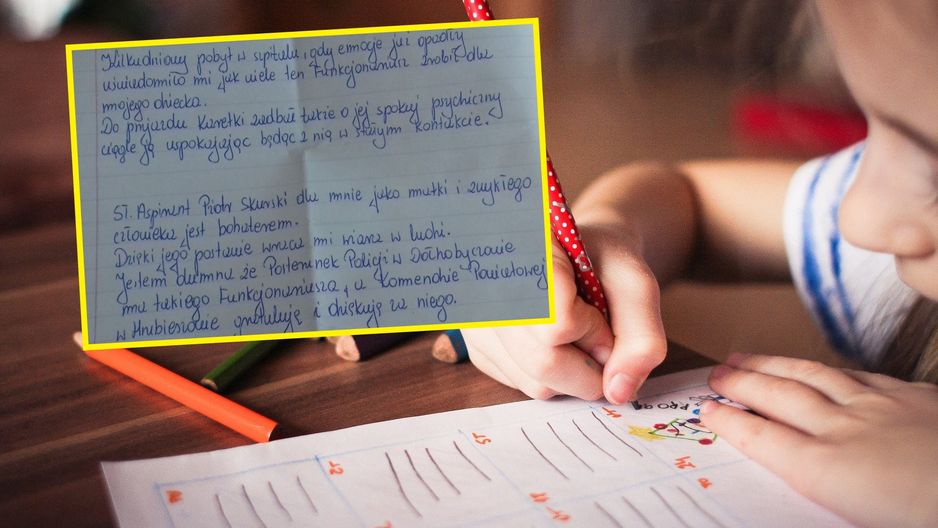 Kilkudniowy pobyt w szpitalu, gdy emocje już opadły
uwiadomiło mi jak wiele ten Funkcjonariusz zrobił dla
mojego dziecka.
Do przyjazdu karetki zadbał także o jej spokój psychiczny
ciągle ją uspokajając będąc z nią w stałym kontakcie.
ST. Aspirant Piotr Skurski dla mnie jako matki i zwykłego
człowieka jest bohaterem.
Dzięki jego postawie wraca mi wiara w ludzi.
Jestem dumna że Posterunek Policji w Dołhobyczowie
ma takiego Funkcjonariusza, a Komendzie Powiatowej
w Hrubieszowie gratuluję i dziękuję za niego.
12